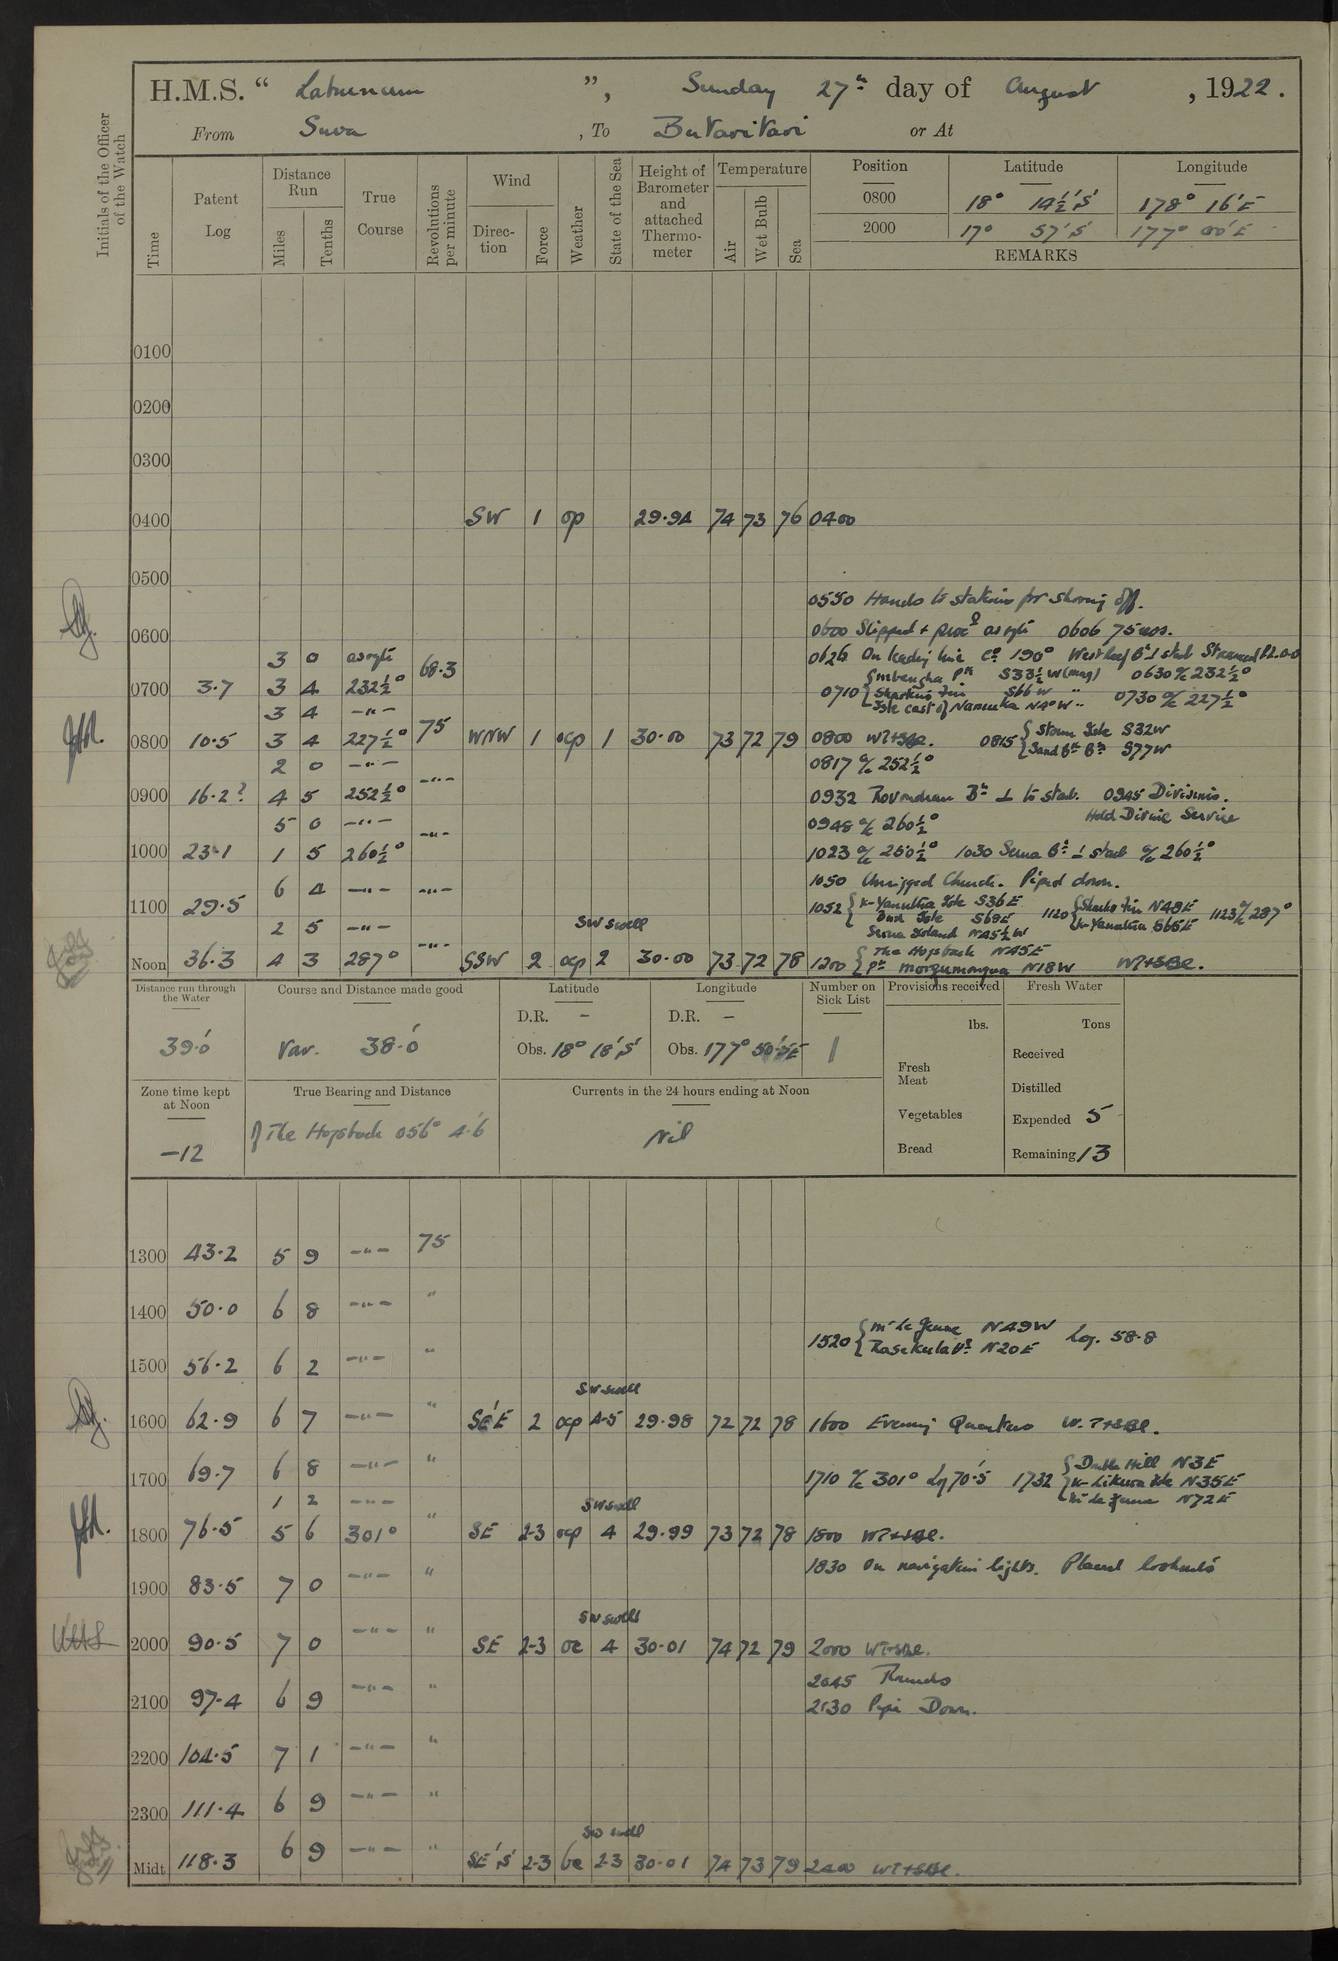 H.M.S. " Laburnum ", Sunday 27th day of August , 1922.
From Suva , To Butaritari or At
Initials of the Officer of the Watch
Time
Patent Log
Distance Run
Miles
Tenths
True Course
Revolutions per minute
Wind
Direction
Force
Weather
State of the Sea
Height of Barometer and attached Thermometer
Temperature
Air
Wet Bulb
Sea
Position Latitude Longitude
0800 18° 14½'S 178° 16'E
2000 17° 57'S 177° 00'E
REMARKS
0100
0200
0300
0400 SW 1 op 29.94 74 73 76 0400
0500
0550 Hands to stations for shoving off.
0600 Slipped + procd as reqte 0606 75 revs.
0600
3 0 as reqte 68.3 0626 On leading line Co 190° West Reef Bn ⊥ starb Streamed P.L. 0.0
0700 3.7 3 4 232½° 0710 { Mbengha Pk S33½W (mag) 0630 a/c 232½°
Sharkes Fin S66W " 0730 a/c 227½°
Isle east of Namuka N40W "
3 4 -"-
0800 10.5 3 4 227½° 75 WNW 1 ocp 1 30.00 73 72 79 0800 WT+SBe. 0815 { Storm Isle S32W
Sand Bk Bn S77W
2 0 -"- 0817 a/c 252½°
0900 16.2? 4 5 252½° -"- 0932 Rovondrau Bn ⊥ to starb. 0945 Divisions.
Held Divine Service
5 0 -"- 0948 a/c 260½°
1000 23.1 1 5 260½° -"- 1023 a/c 250½° 1030 Serua Bn ⊥ starb a/c 260½°
1050 Unrigged Church. Piped down.
6 4 -"- -"-
1100 29.5 1052 { K-Yanutha Isle S36E 1120 { Sharks Fin N48E 1123 a/c 287°
Isle S69E K-Yanutha S65E
Serua Island N45½W
2 5 -"- SW swell
Noon 36.3 4 3 287° -"- SSW 2 ocp 2 30.00 73 72 78 1200 { The Hogsback N45E
Pk N18W WT+SBe.
Distance run through the Water
39.'0
Course and Distance made good
Var. 38.'0
Latitude
D.R. -
Obs. 18° 18'S
Longitude
D.R. -
Obs. 177° 50'.5E
Number on Sick List
1
Provisions received
lbs.
Fresh Meat
Vegetables
Bread
Fresh Water
Tons
Received
Distilled
Expended 5
Remaining 13
Zone time kept at Noon
-12
True Bearing and Distance
of The Hogsback 056° 4.'6
Currents in the 24 hours ending at Noon
Nil
1300 43.2 5 9 -"- 75
1400 50.0 6 8 -"- "
1520 { Mt Le Jeune N49W Log. 58.8
N20E
1500 56.2 6 2 -"- "
SW swell
1600 62.9 6 7 -"- " SE'E 2 ocp 4-5 29.98 72 72 78 1600 Evening Quarters W.T+SBe.
1700 69.7 6 8 -"- " 1710 a/c 301° Log 70.'5 1732 { Double Hill N3E
K-Likuri Isle N35E
Mt Le Jeune N72E
1 2 -"- SW swell
1800 76.5 5 6 301° " SE 2-3 ocp 4 29.99 73 72 78 1800 WT+SBe.
1830 On navigation lights. Placed lookouts
1900 83.5 7 0 -"- "
SW swell
2000 90.5 7 0 -"- " SE 2-3 oc 4 30.01 74 72 79 2000 WT+SBe.
2045 Rounds
2100 97.4 6 9 -"- " 2130 Pipe Down.
2200 104.5 7 1 -"- "
2300 111.4 6 9 -"- "
SW swell
Midt 118.3 6 9 -"- " SE'S 2-3 bc 2-3 30.01 74 73 79 2400 WT+SBe.